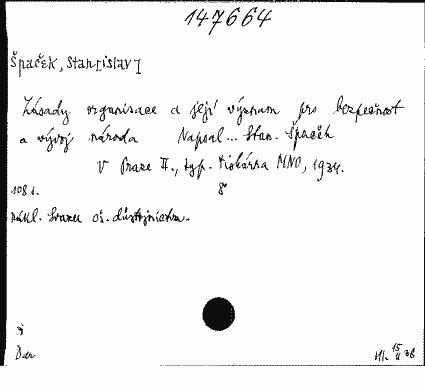 147664
Špaček, Stan[islav]
Zásady organisace a její význam pro bezpečnost
a vývoj národa Napsal... Stan. Špaček
V Praze II., typ. Tiskárna MNO, 1934.
108 s. 8°
Nákl. Svazu čs. důstojnictva.
Dar